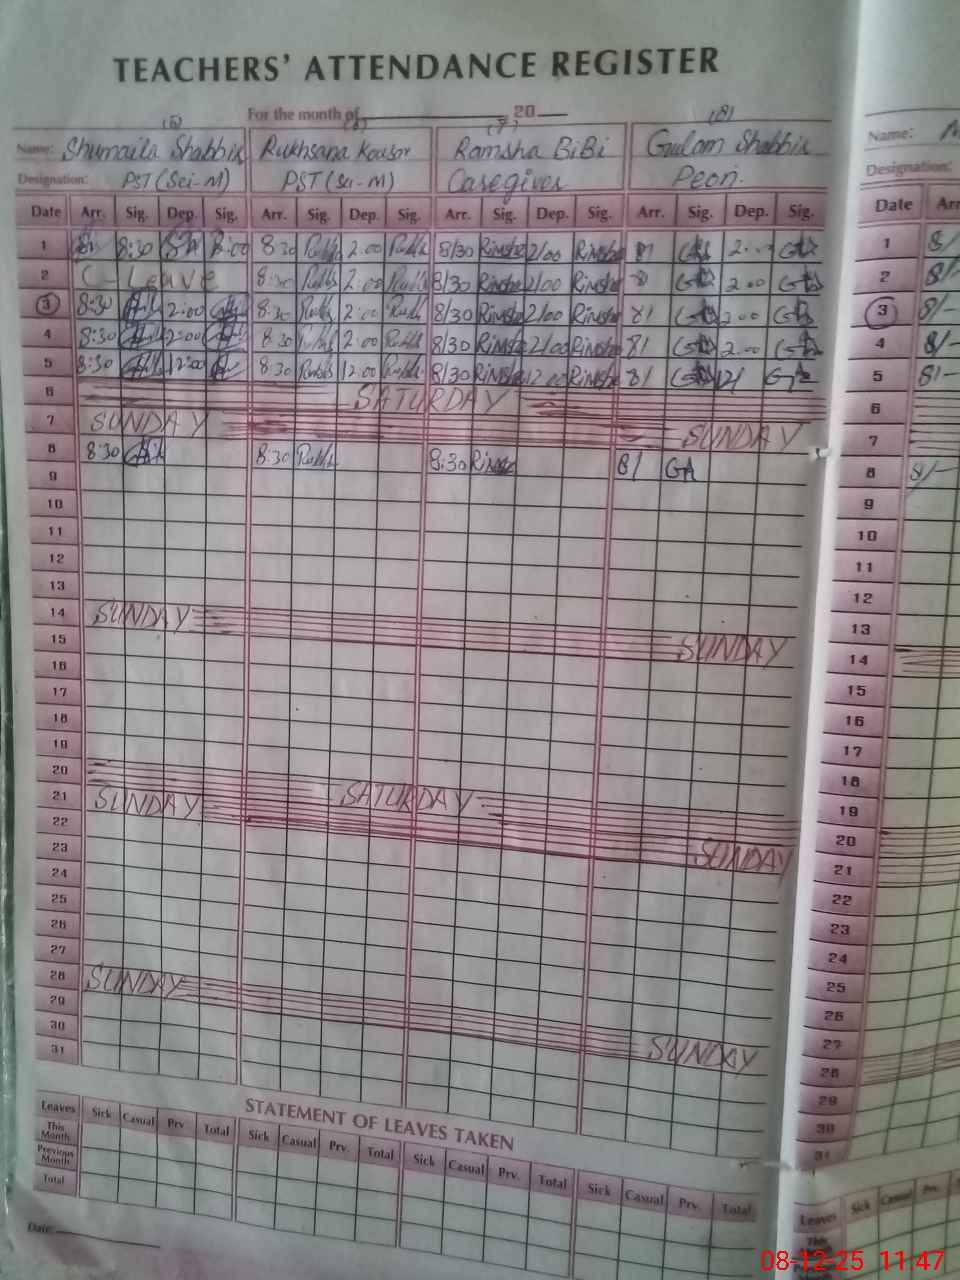 TEACHERS' ATTENDANCE REGISTER
For the month of 20
(5) (6) (7) (8)
Name: Shumaila Shabbir Rukhsana Kousor Ramsha BiBi Gulam Shabbir Name:
Designation: PST (Sci-M) PST (Sci-M) Caregiver Peon. Designation:
Date Arr. Sig. Dep. Sig. Arr. Sig. Dep. Sig. Arr. Sig. Dep. Sig. Arr. Sig. Dep. Sig. Date Arr
1 8:30 8:30 2:00 8/30 Rimsha 2/00 Rimsha 8/ 2:00 1 8/-
2 C-Leave 8:30 2:00 8/30 Rimsha 2/00 Rimsha 8/ 2:00 2 8/-
3 8:30 2:00 8:30 2:00 8/30 Rimsha 2/00 Rimsha 8/ 2:00 3 8/-
4 8:30 2:00 8:30 2:00 8/30 Rimsha 2/00 Rimsha 8/ 2:00 4 8/-
5 8:30 12:00 8:30 12:00 8/30 Rimsha 12:00 Rimsha 8/ 12/ 5 8/-
6 SATURDAY 6
7 SUNDAY SUNDAY 7
8 8:30 8:30 8:30 8/ GA 8 8/-
9 9
10 10
11 11
12 12
13 13
14 SUNDAY SUNDAY 14
15 15
16 16
17 17
18 18
19 19
20 SATURDAY 20
21 SUNDAY SUNDAY 21
22 22
23 23
24 24
25 25
26 26
27 27
28 SUNDAY SUNDAY 28
29 29
30 30
31 31
STATEMENT OF LEAVES TAKEN
Leaves Sick Casual Prv. Total Sick Casual Prv. Total Sick Casual Prv. Total Sick Casual Prv. Total Leaves Sick Casual Prv.
This Month This
Previous Month
Total
Date:
08-12-25 11:47